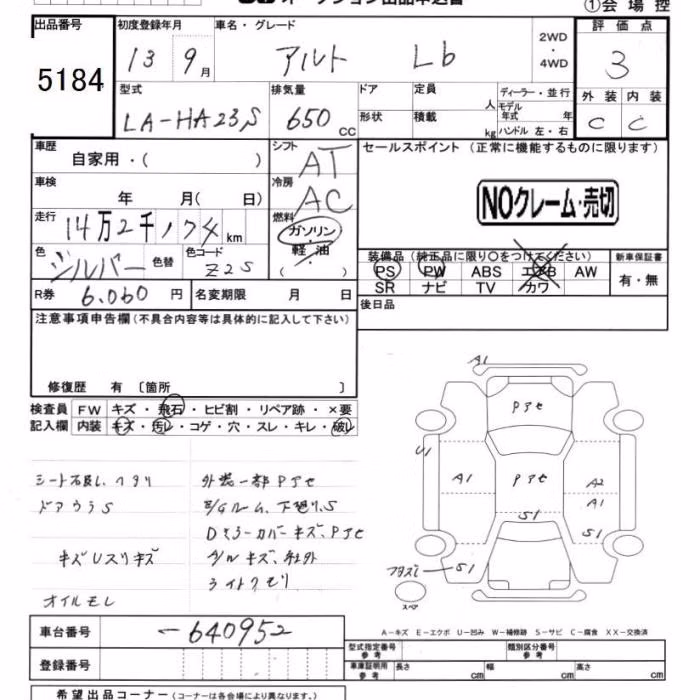 オークション出品申込書
①会場控
出品番号 初度登録年月 車名・グレード 2WD・4WD 評価点
5184 13 9月 アルト Lb 3
型式 排気量 ドア 定員 人 ディーラー・並行 外装 内装
LA-HA23S 650 CC 形状 積載 kg モデル年式 年 ハンドル 左・右 C C
車歴 自家用・( ) シフト AT セールスポイント(正常に機能するものに限ります)
車検 年 月( 日) 冷房 AC
NOクレーム・売切
走行 14万2千174 km 燃料 ガソリン・軽・油 ( )
色 シルバー 色替 色コード Z2S
装備品(純正品に限り○をつけてください) 新車保証書
PS PW ABS エアB AW 有・無
SR ナビ TV カワ
R券 6.060 円 名変期限 月 日 後日品
注意事項申告欄(不具合内容等は具体的に記入して下さい)
修復歴 有 〔箇所 〕
検査員 FW キズ・飛石・ヒビ割・リペア跡・×要
記入欄 内装 キズ・汚レ・コゲ・穴・スレ・キレ・破レ
シート
ドアウラS
キズUスリキズ
オイルモレ
外装一部Pアセ
E/Gルーム、下廻りS
Dミラーカバーキズ、Pアセ
A/Wキズ、社外
ライトクモリ
A1
Pアセ
U1 A1 Pアセ A2
A1
S1 S1
S1
スペア
A-キズ E-エクボ U-凹み W-補修跡 S-サビ C-腐食 XX-交換済
車台番号 -640952
登録番号
型式指定番号 参考 類別区分番号 参考
車庫証明用 参考 長さ cm 幅 cm 高さ cm
希望出品コーナー(コーナーは各会場により異なります。)